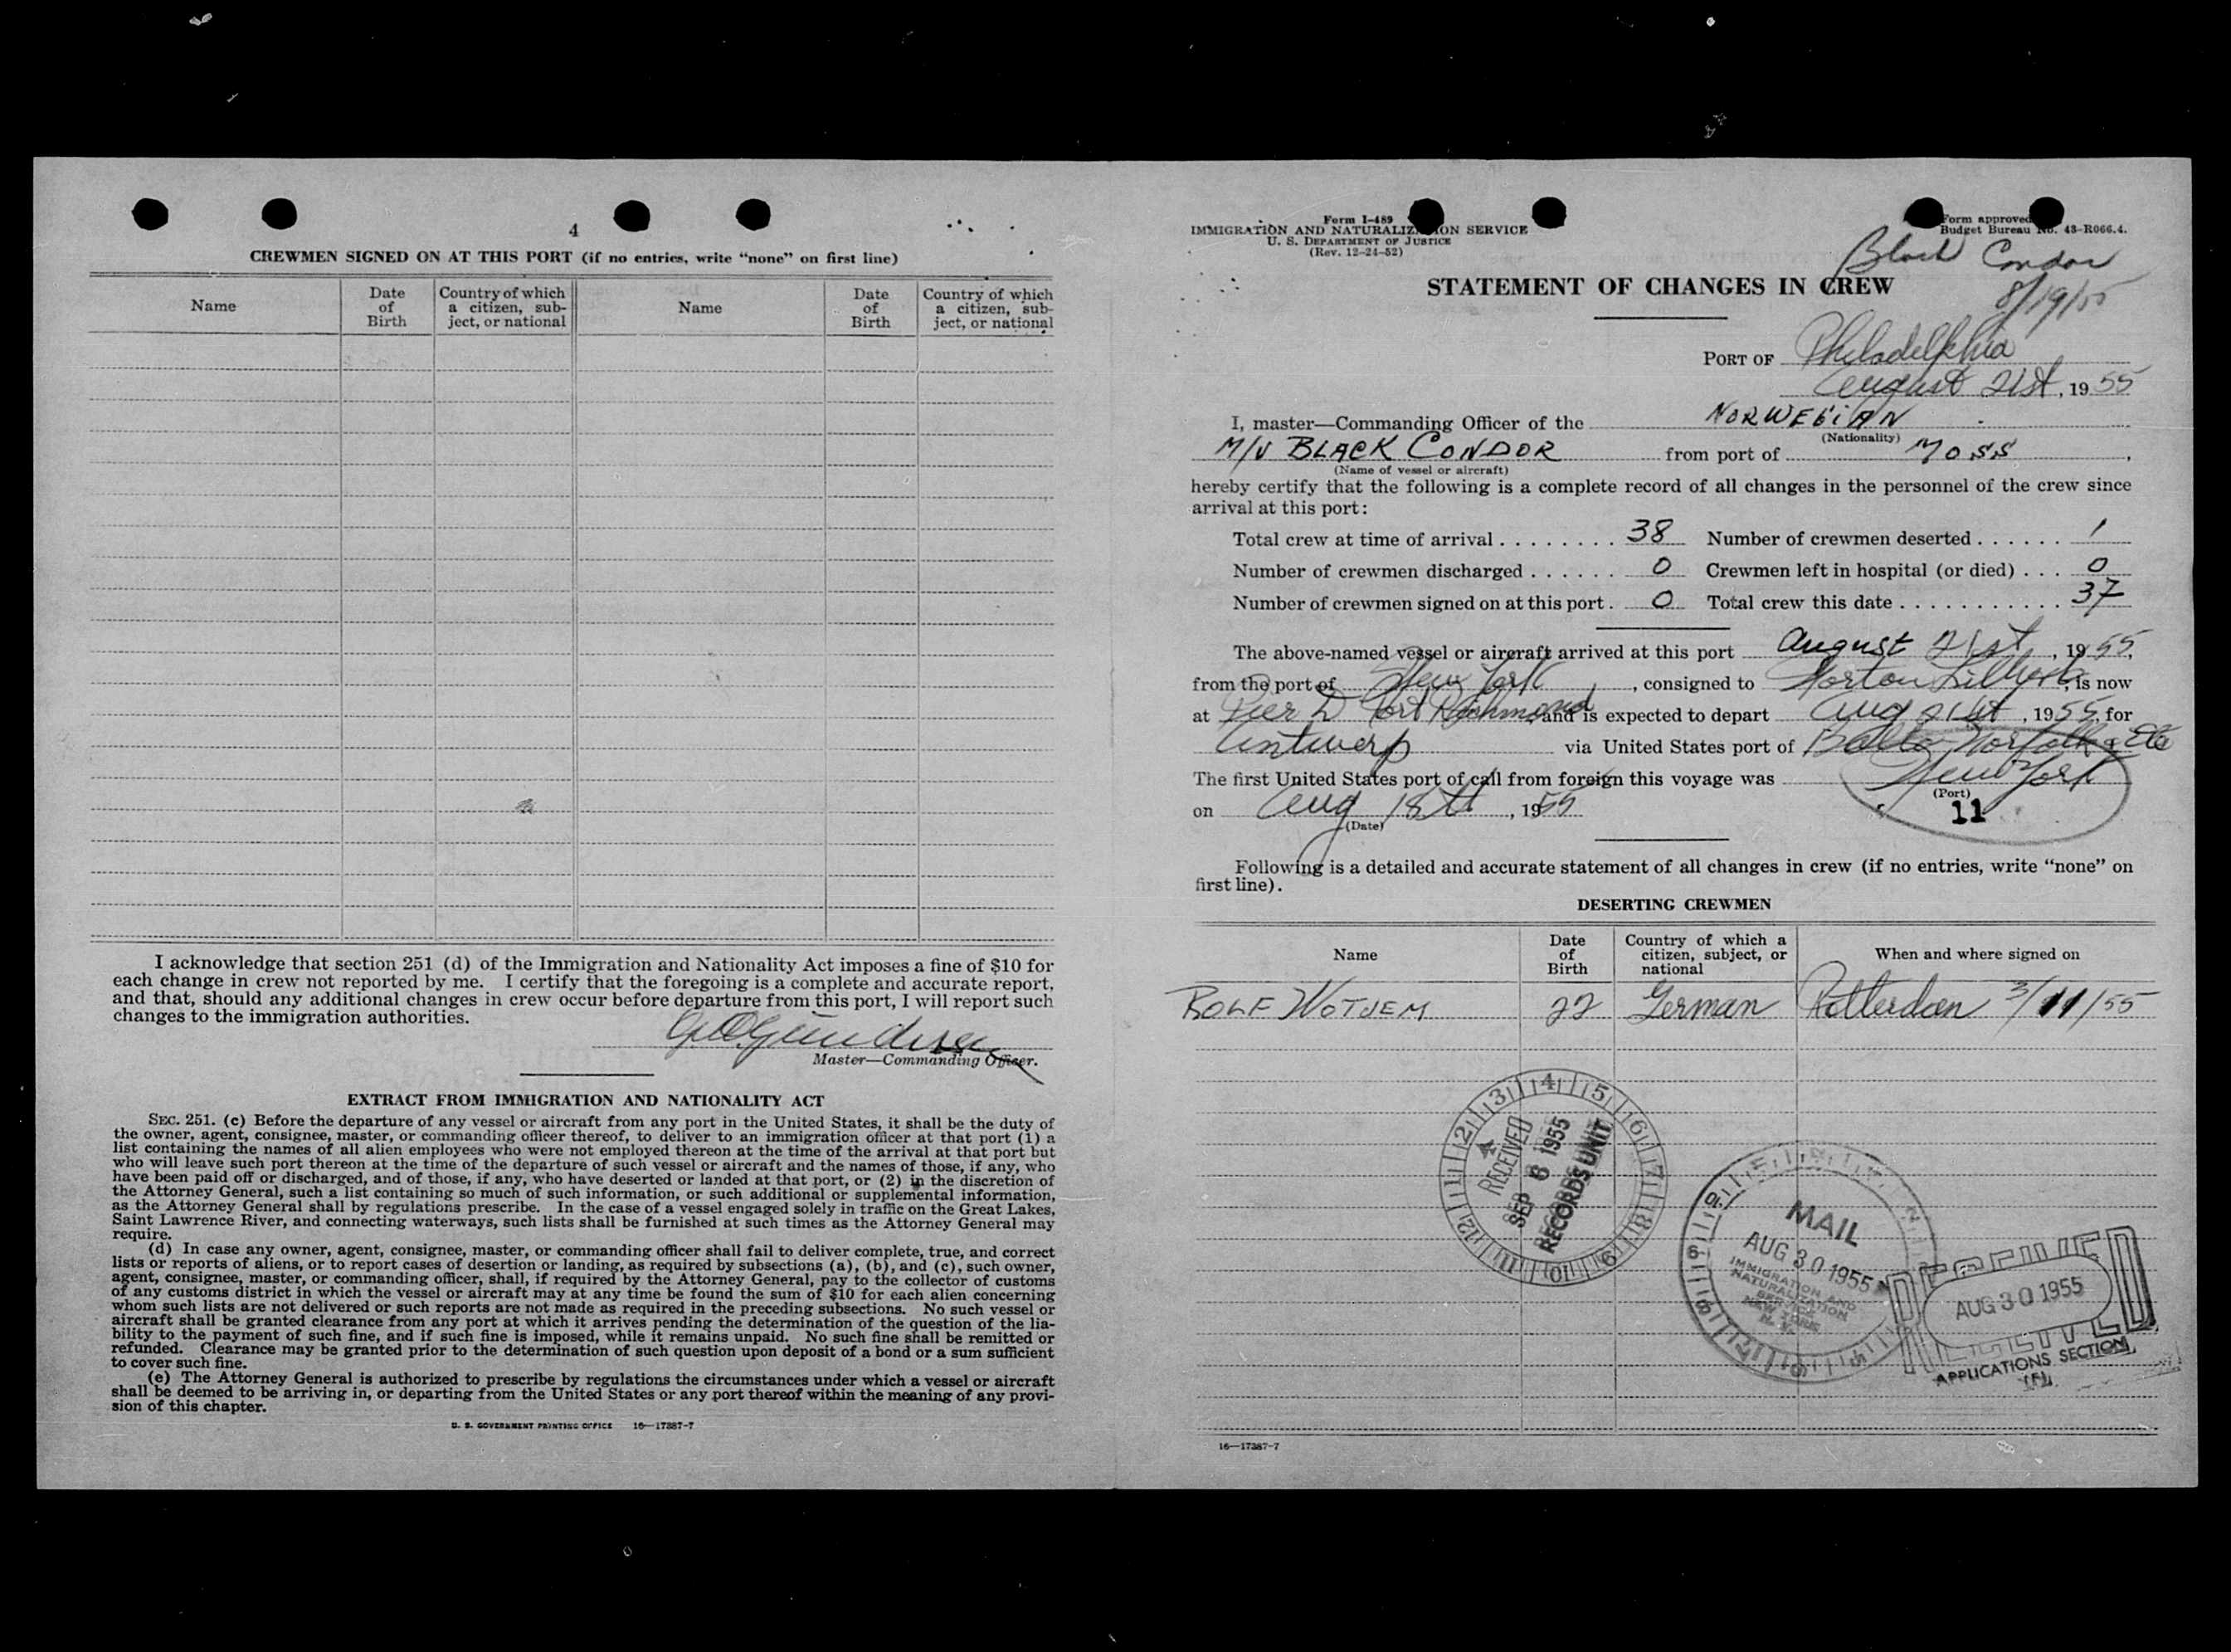 4
CREWMEN SIGNED ON AT THIS PORT (if no entries, write “none” on first line)
Name
Date of Birth
Country of which a citizen, subject, or national
Name
Date of Birth
Country of which a citizen, subject, or national
I acknowledge that section 251 (d) of the Immigration and Nationality Act imposes a fine of $10 for
each change in crew not reported by me. I certify that the foregoing is a complete and accurate report,
and that, should any additional changes in crew occur before departure from this port, I will report such
changes to the immigration authorities.
Master—Commanding Officer.
EXTRACT FROM IMMIGRATION AND NATIONALITY ACT
SEC. 251. (c) Before the departure of any vessel or aircraft from any port in the United States, it shall be the duty of
the owner, agent, consignee, master, or commanding officer thereof, to deliver to an immigration officer at that port (1) a
list containing the names of all alien employees who were not employed thereon at the time of the arrival at that port but
who will leave such port thereon at the time of the departure of such vessel or aircraft and the names of those, if any, who
have been paid off or discharged, and of those, if any, who have deserted or landed at that port, or (2) in the discretion of
the Attorney General, such a list containing so much of such information, or such additional or supplemental information,
as the Attorney General shall by regulations prescribe. In the case of a vessel engaged solely in traffic on the Great Lakes,
Saint Lawrence River, and connecting waterways, such lists shall be furnished at such times as the Attorney General may
require.
(d) In case any owner, agent, consignee, master, or commanding officer shall fail to deliver complete, true, and correct
lists or reports of aliens, or to report cases of desertion or landing, as required by subsections (a), (b), and (c), such owner,
agent, consignee, master, or commanding officer, shall, if required by the Attorney General, pay to the collector of customs
of any customs district in which the vessel or aircraft may at any time be found the sum of $10 for each alien concerning
whom such lists are not delivered or such reports are not made as required in the preceding subsections. No such vessel or
aircraft shall be granted clearance from any port at which it arrives pending the determination of the question of the lia-
bility to the payment of such fine, and if such fine is imposed, while it remains unpaid. No such fine shall be remitted or
refunded. Clearance may be granted prior to the determination of such question upon deposit of a bond or a sum sufficient
to cover such fine.
(e) The Attorney General is authorized to prescribe by regulations the circumstances under which a vessel or aircraft
shall be deemed to be arriving in, or departing from the United States or any port thereof within the meaning of any provi-
sion of this chapter.
U. S. GOVERNMENT PRINTING OFFICE 16—17387-7
Form I-489
IMMIGRATION AND NATURALIZATION SERVICE
U. S. DEPARTMENT OF JUSTICE
(Rev. 12-24-52)
Form approved
Budget Bureau No. 43-R066.4.
Black Condor
8/19/55
STATEMENT OF CHANGES IN CREW
PORT OF Philadelphia
August 21st, 1955
I, master—Commanding Officer of the NORWEGIAN
(Nationality)
M/V BLACK CONDOR from port of MOSS,
(Name of vessel or aircraft)
hereby certify that the following is a complete record of all changes in the personnel of the crew since
arrival at this port:
Total crew at time of arrival 38 Number of crewmen deserted 1
Number of crewmen discharged 0 Crewmen left in hospital (or died) 0
Number of crewmen signed on at this port 0 Total crew this date 37
The above-named vessel or aircraft arrived at this port August 21st, 1955,
from the port of New York, consigned to Norton Lilly, is now
at Pier D Port Richmond and is expected to depart Aug 21st, 1955, for
Antwerp via United States port of Balto Norfolk
The first United States port of call from foreign this voyage was New York
(Port)
on Aug 18th, 1955
(Date)
11
Following is a detailed and accurate statement of all changes in crew (if no entries, write “none” on
first line).
DESERTING CREWMEN
Name
Date of Birth
Country of which a citizen, subject, or national
When and where signed on
ROLF WOTJEM 22 German Rotterdam 3/11/55
RECEIVED
SEP 8 1955
RECORDS UNIT
MAIL
AUG 30 1955
IMMIGRATION AND
NATURALIZATION
SERVICE
NEW YORK
N. Y.
RECEIVED
AUG 30 1955
APPLICATIONS SECTION
16—17387-7